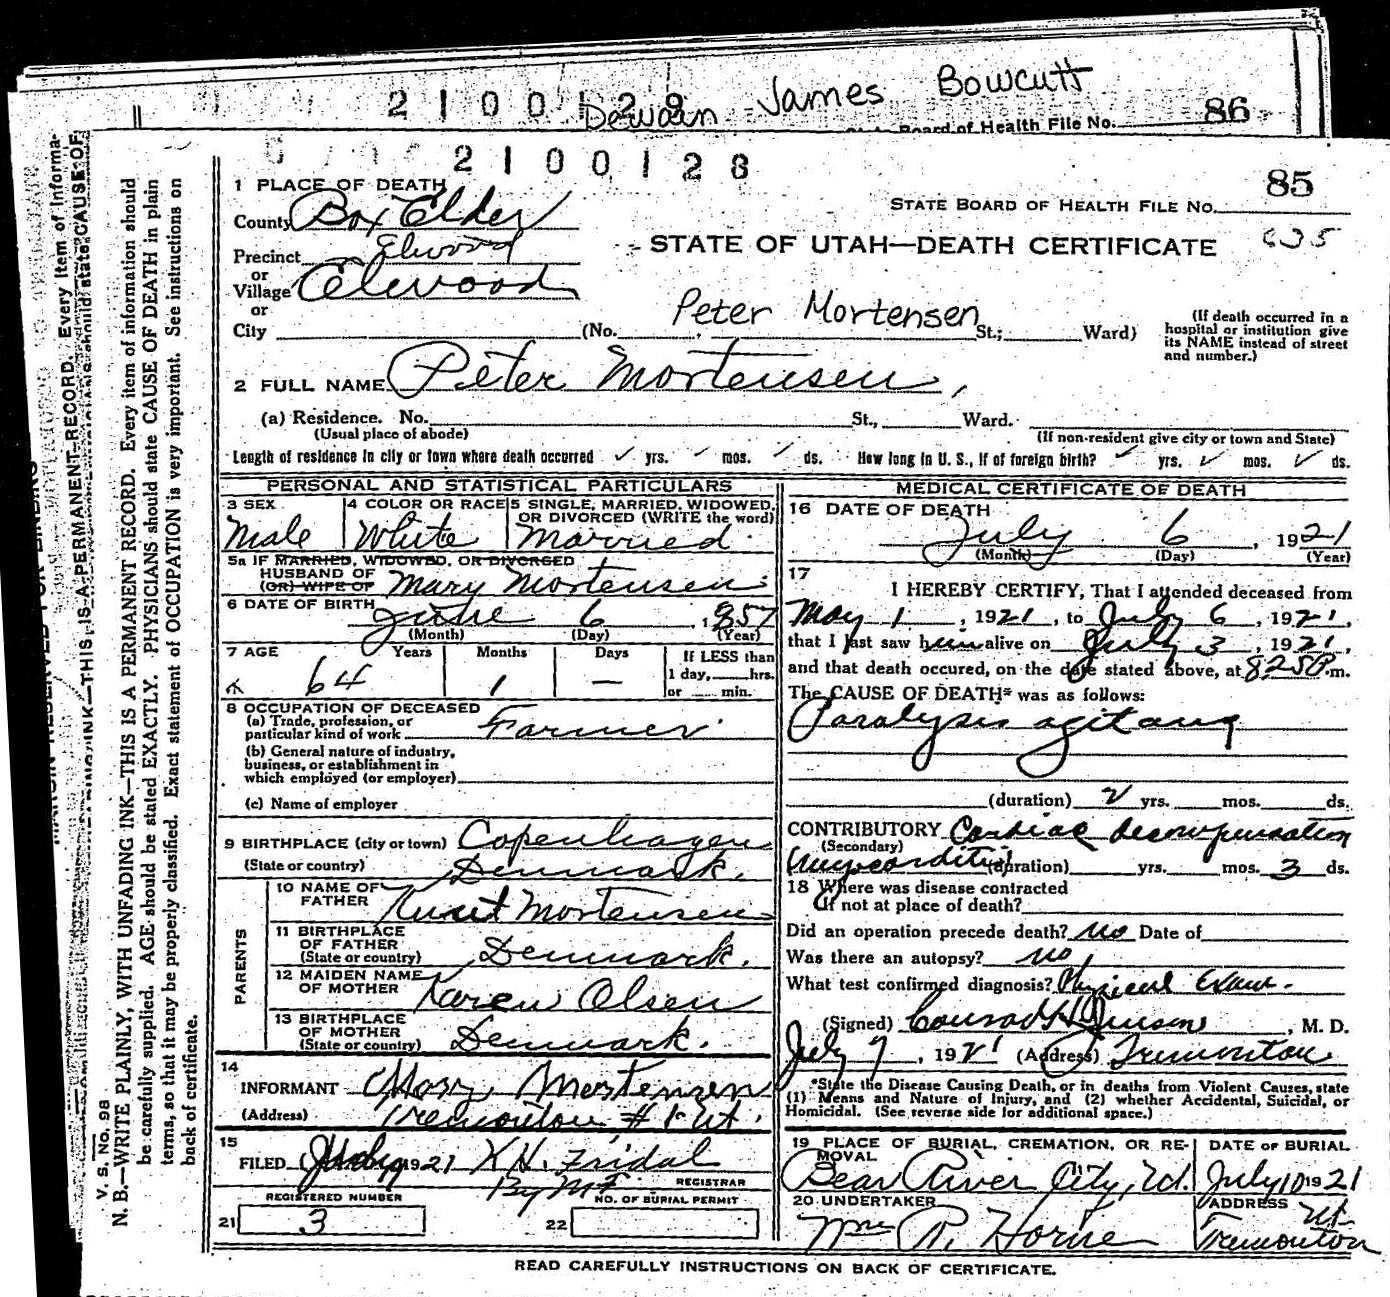 2100129
Dewain James Bowcutt
State Board of Health File No. 86
2100128
85
1 PLACE OF DEATH
STATE BOARD OF HEALTH FILE NO.
County Box Elder
635
STATE OF UTAH—DEATH CERTIFICATE
Precinct Elwood
or
Village Elwood
or
Peter Mortensen
City (No. St.; Ward)
(If death occurred in a
hospital or institution give
its NAME instead of street
and number.)
2 FULL NAME Peter Mortensen,
(a) Residence. No. St., Ward.
(Usual place of abode)
(If non-resident give city or town and State)
Length of residence in city or town where death occurred ✓ yrs. ✓ mos. ✓ ds. How long in U. S., if of foreign birth? ✓ yrs. ✓ mos. ✓ ds.
PERSONAL AND STATISTICAL PARTICULARS
3 SEX
Male
4 COLOR OR RACE
White
5 SINGLE, MARRIED, WIDOWED,
OR DIVORCED (WRITE the word)
Married
5a IF MARRIED, WIDOWED, OR DIVORCED
HUSBAND OF
(OR) WIFE OF Mary Mortensen
6 DATE OF BIRTH June 6, 1857
(Month) (Day) (Year)
7 AGE Years Months Days
If LESS than
1 day, hrs.
or min.
64 1 —
8 OCCUPATION OF DECEASED
(a) Trade, profession, or
particular kind of work Farmer
(b) General nature of industry,
business, or establishment in
which employed (or employer)
(c) Name of employer
9 BIRTHPLACE (city or town) Copenhagen
(State or country) Denmark.
PARENTS
10 NAME OF
FATHER Mortensen
11 BIRTHPLACE
OF FATHER
(State or country) Denmark.
12 MAIDEN NAME
OF MOTHER Karen Olsen
13 BIRTHPLACE
OF MOTHER
(State or country) Denmark.
14
INFORMANT Mary Mortensen
(Address) Tremonton #1 Ut.
15
FILED July 9 1921 K H. Fridal
By M F. REGISTRAR
REGISTERED NUMBER NO. OF BURIAL PERMIT
21 3 22
MEDICAL CERTIFICATE OF DEATH
16 DATE OF DEATH
July 6, 1921
(Month) (Day) (Year)
17
I HEREBY CERTIFY, That I attended deceased from
May 1, 1921, to July 6, 1921,
that I last saw him alive on July 3, 1921,
and that death occured, on the date stated above, at 8,25 P.m.
The CAUSE OF DEATH* was as follows:
Paralysis agitans
(duration) 2 yrs. mos. ds.
CONTRIBUTORY Cardiac decompensation
(Secondary)
(myocarditis) (duration) yrs. mos. 3 ds.
18 Where was disease contracted
if not at place of death?
Did an operation precede death? No Date of
Was there an autopsy? No
What test confirmed diagnosis? Physical Exam.
(Signed) Conrad H Jenson, M. D.
July 7, 1921 (Address) Tremonton
*State the Disease Causing Death, or in deaths from Violent Causes, state
(1) Means and Nature of Injury, and (2) whether Accidental, Suicidal, or
Homicidal. (See reverse side for additional space.)
19 PLACE OF BURIAL, CREMATION, OR RE-
MOVAL
Bear River City, Ut.
DATE OF BURIAL
July 10 1921
20 UNDERTAKER
Wm R. Horne
ADDRESS
Ut
Tremonton
READ CAREFULLY INSTRUCTIONS ON BACK OF CERTIFICATE.
V. S. No. 98
N. B.—WRITE PLAINLY, WITH UNFADING INK—THIS IS A PERMANENT RECORD. Every item of information should
be carefully supplied. AGE should be stated EXACTLY. PHYSICIANS should state CAUSE OF DEATH in plain
terms, so that it may be properly classified. Exact statement of OCCUPATION is very important. See instructions on
back of certificate.
INK—THIS IS A PERMANENT RECORD. Every item of informa-
should state CAUSE OF
MARGIN RESERVED FOR BINDING